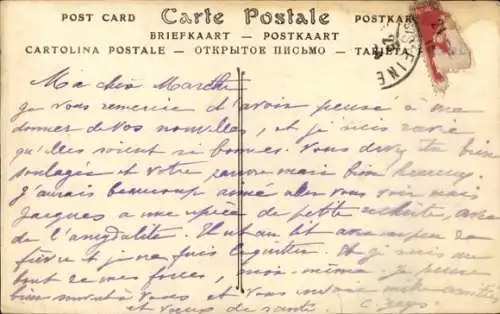 POST CARD Carte Postale POSTKARTE
BRIEFKAART — POSTKAART
CARTOLINA POSTALE — ОТКРЫТОЕ ПИСЬМО — TARJETA
SEINE
Ma chère Marthe
Je vous remercie d'avoir pensé à me
donner de vos nouvelles, et je suis ravie
qu'elles soient si bonnes. Vous devez être bien
soulagés et votre mari bien heureux.
J'aurais beaucoup aimé aller vous voir mais
Jacques a une espèce de petite rechute, avec
de l'amygdalite. Il est au lit avec un peu de
fièvre et je ne puis le quitter. Et je suis au
bout de mes forces, moi-même. Je pense
bien souvent à vous et vous envoie mille amitiés
et vœux de santé.